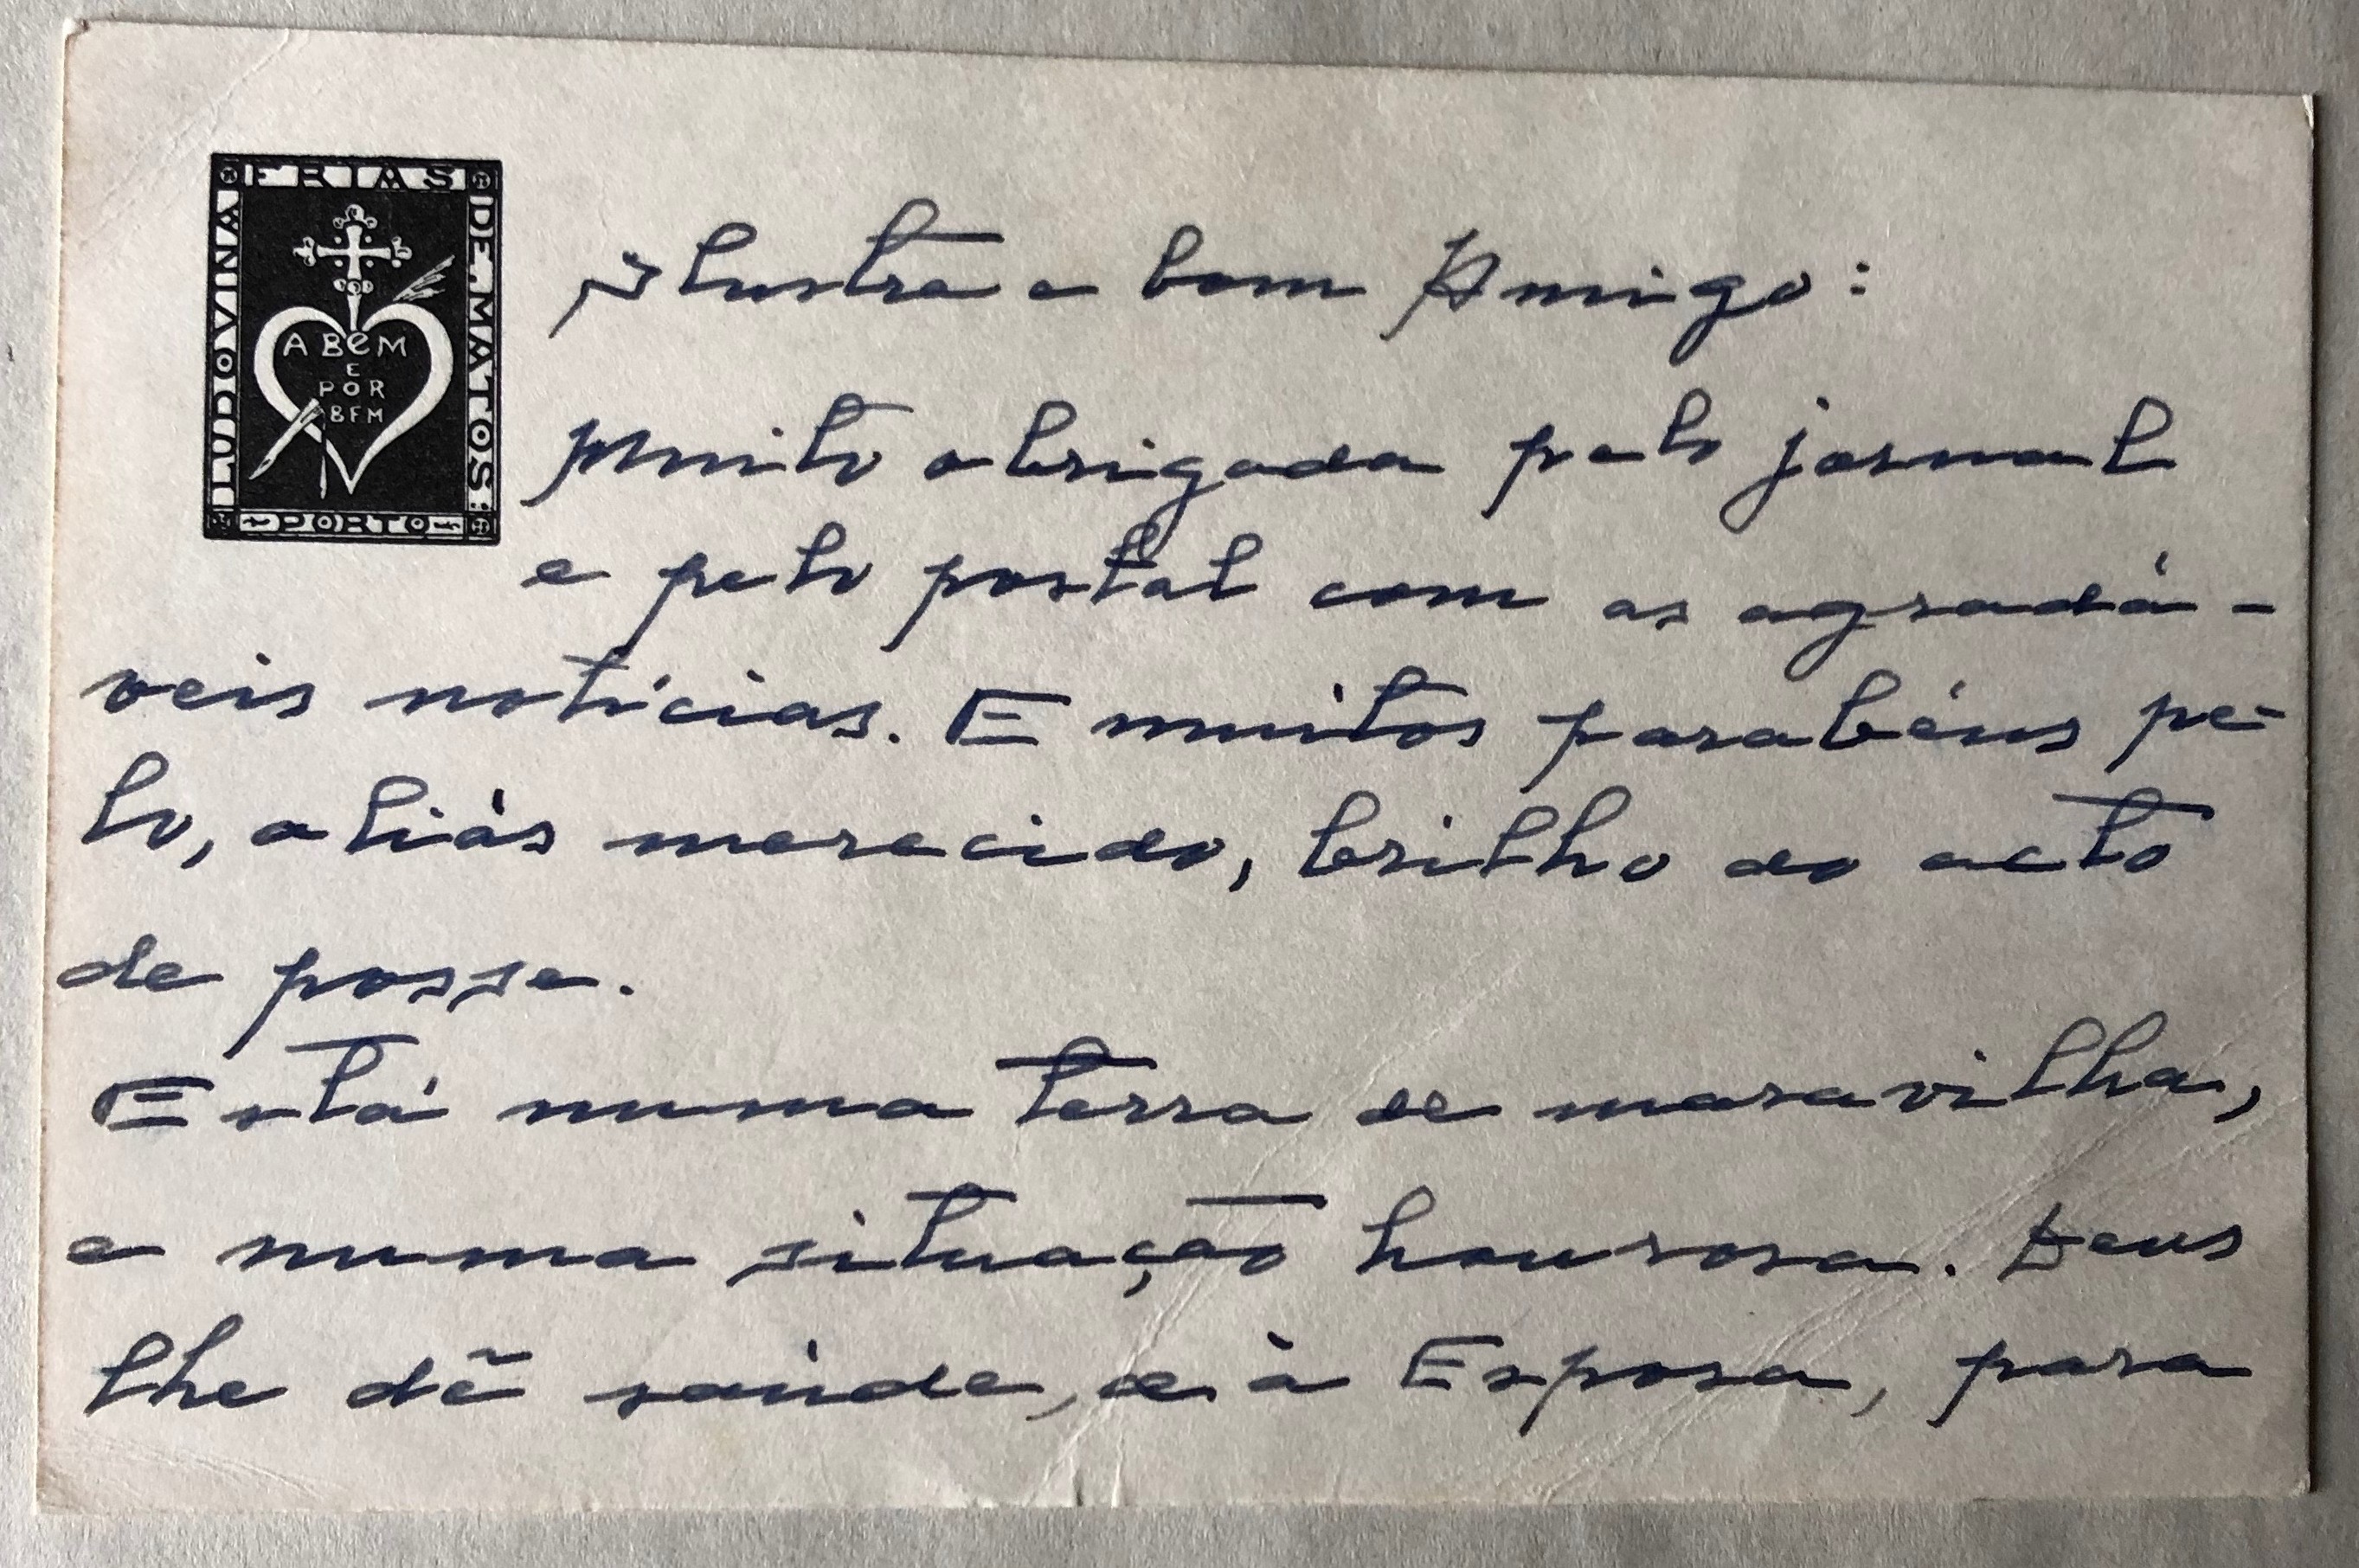 FRIAS
LUDOVINA
DE.MATOS:
A BeM
E
POR
BEM
PORTO
Ilustre e bom Amigo:
Muito obrigada pelo jornal
e pelo postal com as agradá-
veis notícias. E muitos parabéns pe-
lo, aliás merecido, brilho do acto
de posse.
Está numa terra de maravilha,
e numa situação honrosa. Deus
lhe dê saúde, e à Esposa, para